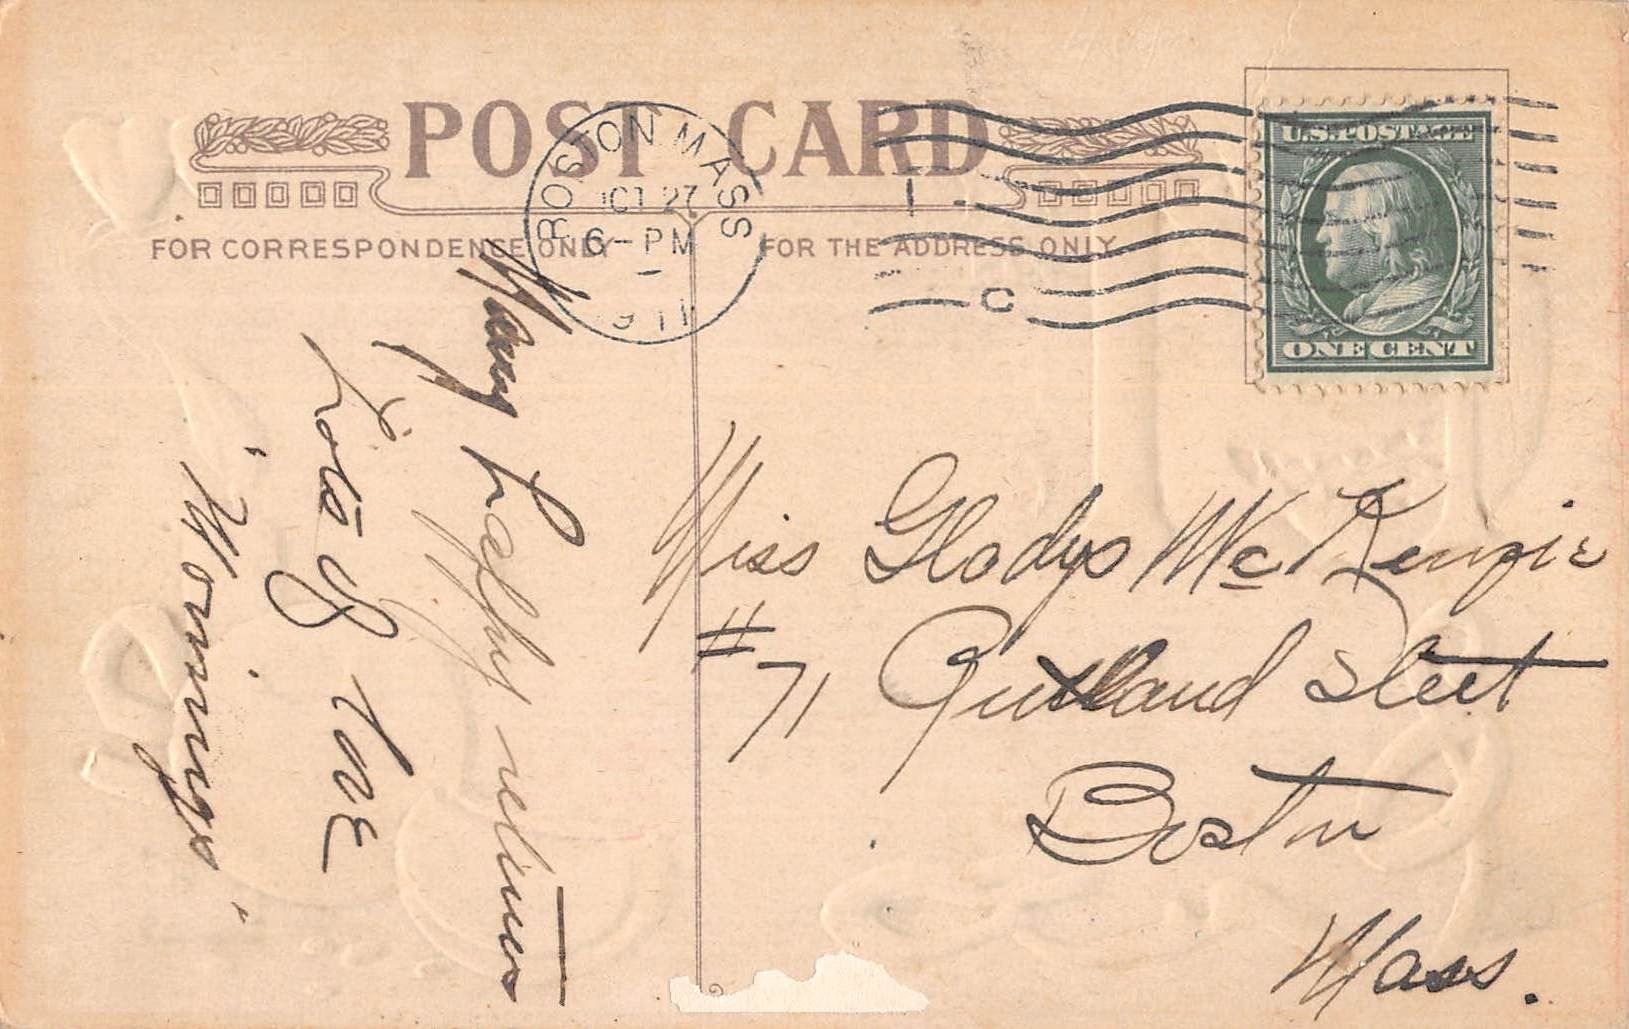 POST CARD
FOR CORRESPONDENCE ONLY
FOR THE ADDRESS ONLY
BOSTON. MASS
OCT 27
6-PM
1911
1
C
U.S. POSTAGE
ONE CENT
Many happy returns
Lots of love
"Mornings"
Miss Gladys McKenzie
#71 Rutland Street
Boston
Mass.